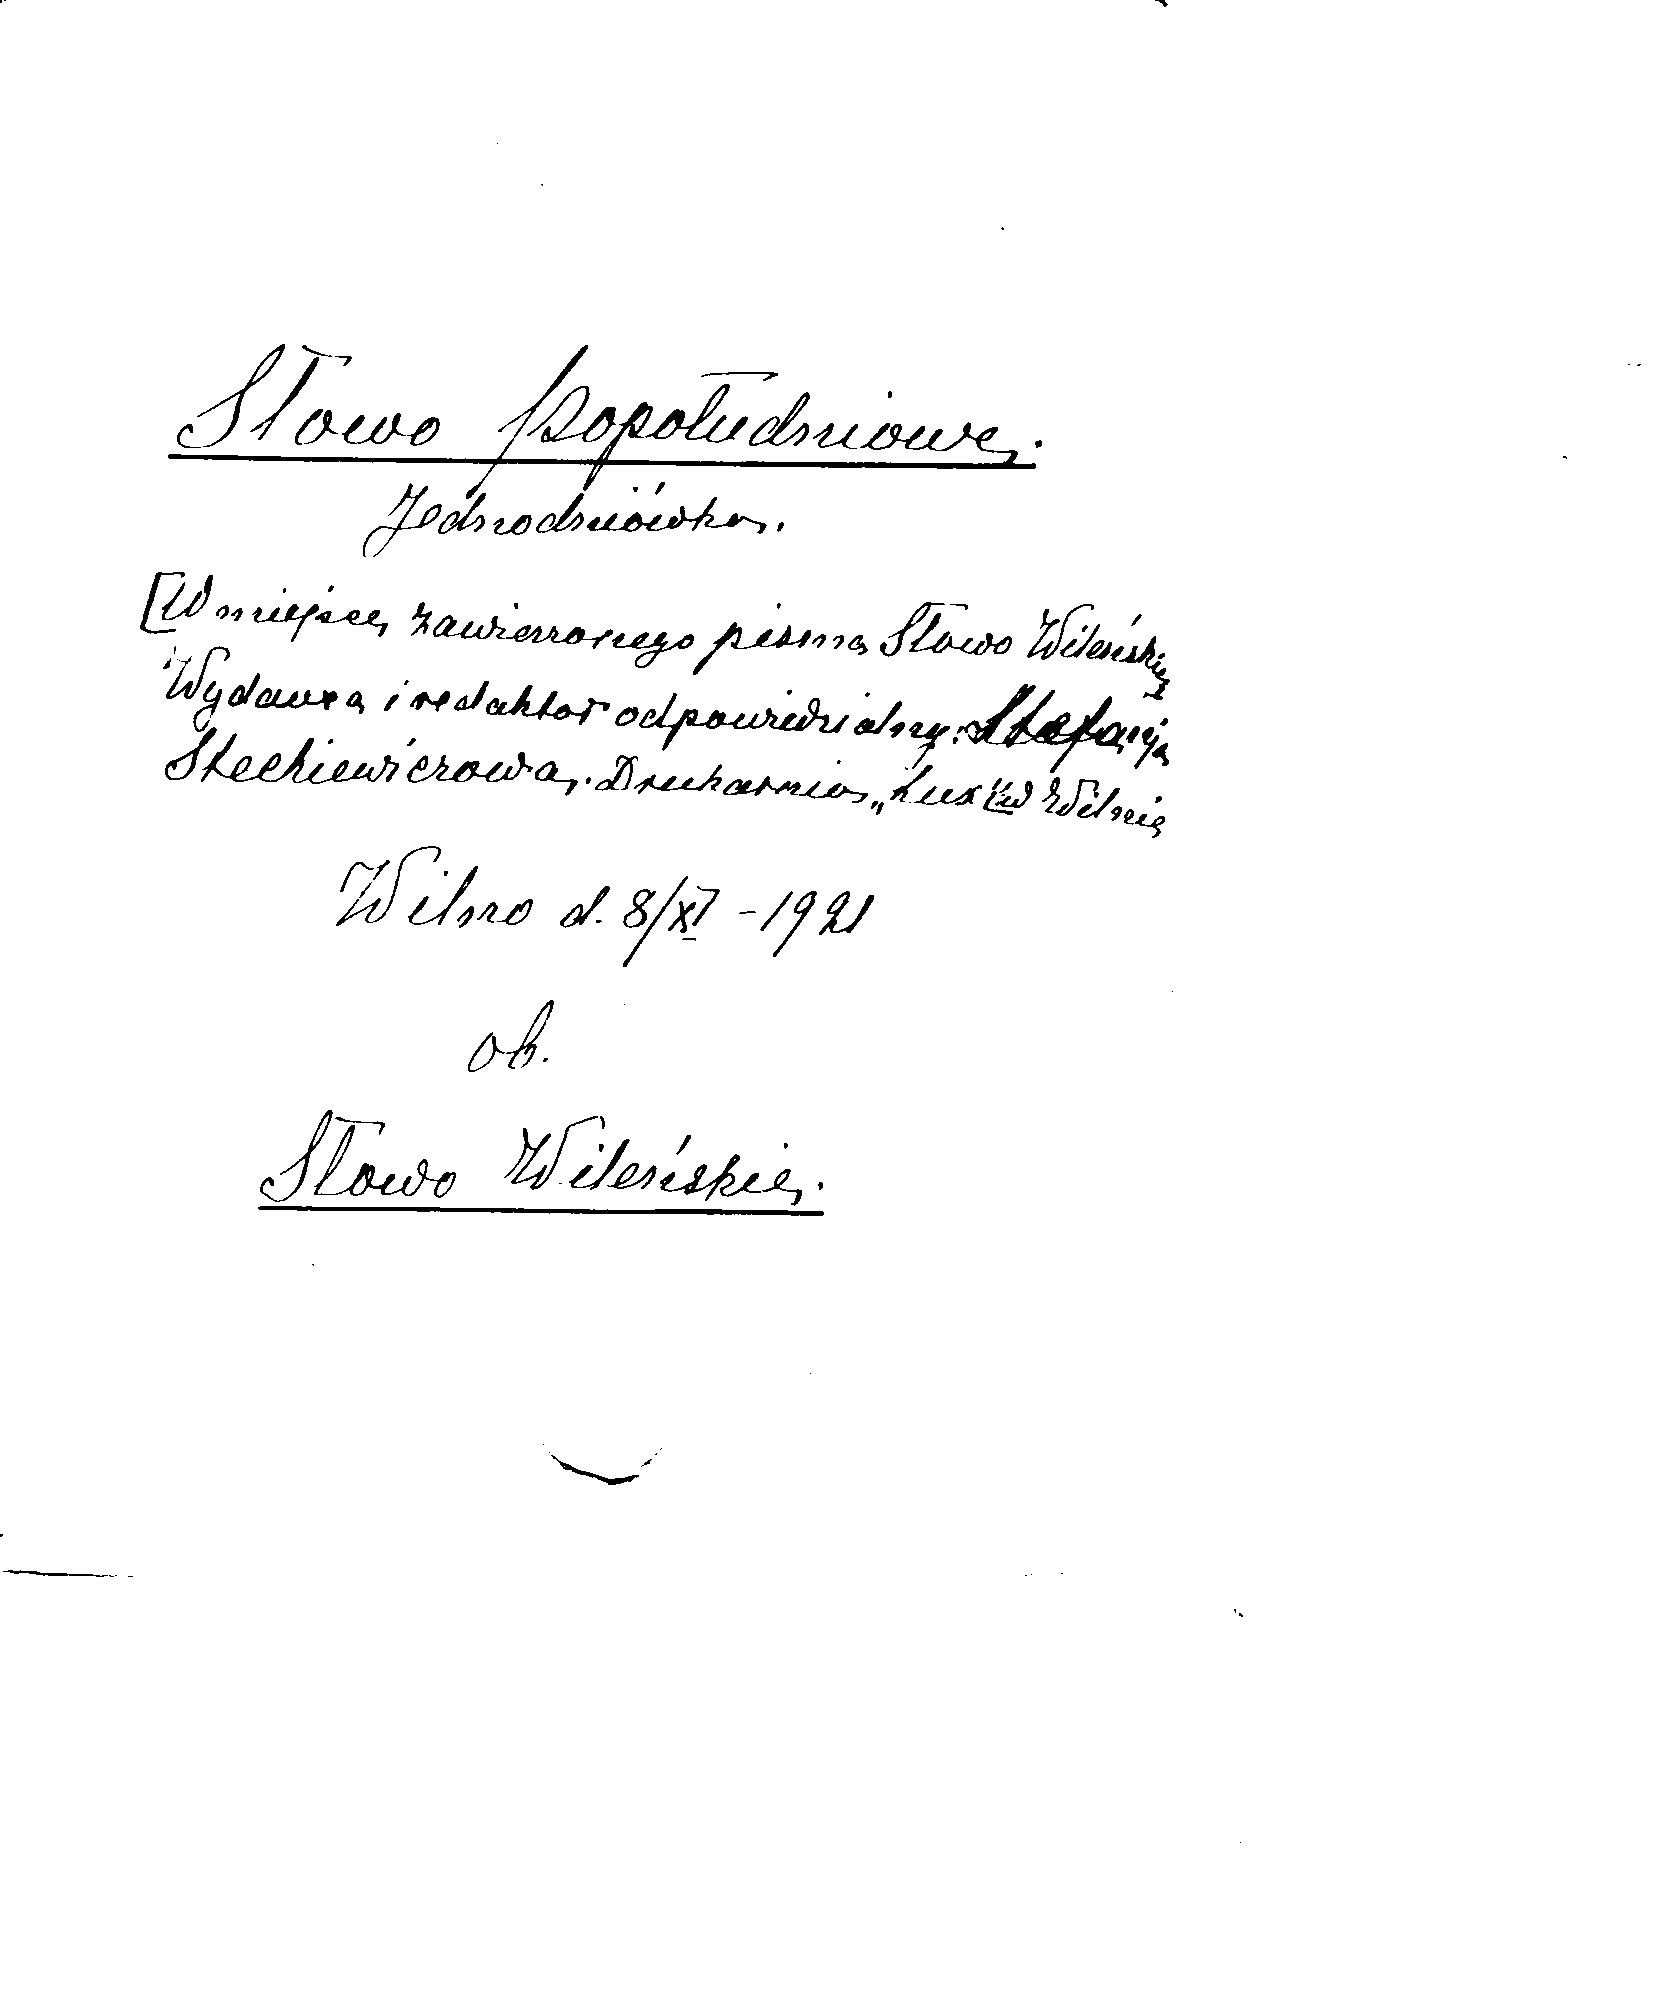 Słowo Popołudniowe.
Jednodniówka.
[W miejsce zawieszonego pisma Słowo Wileńskie]
Wydawca i redaktor odpowiedzialny: Stefanja
Steckiewiczowa. Drukarnia „Lux" w Wilnie
Wilno d. 8/XI - 1921
ob.
Słowo Wileńskie.